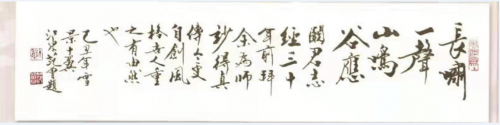 長嘯
一聲
山鳴
谷應
君志
經三十
年前拜
余為師
妙得真
傳今更
自創風
格吾人重
之有由然
也
己丑年
十翼
江東范曾題